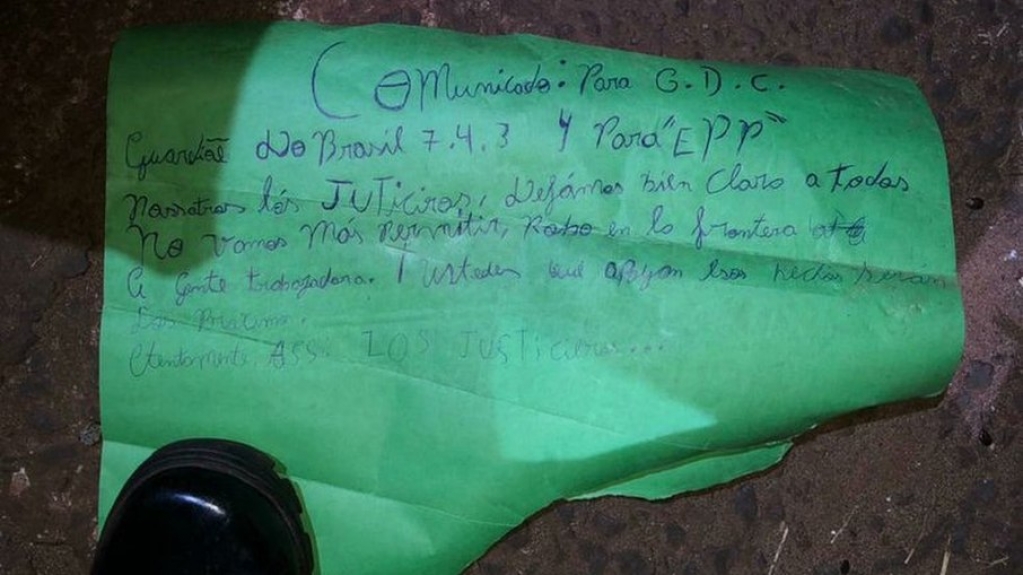 Comunicado: Para G.D.C.
Guardiãe do Brasil 7.4.3 y Para "EPP"
Nossotros lós JUTiciros, Dejámos bien Claro a todas
No vamos más permitir, Robo en la frontera
a gente trabajadora. I ustedes que apoyan esos hechos serán
Los Briximo.
Atentamente. Ass: LOS JUSTicieros...